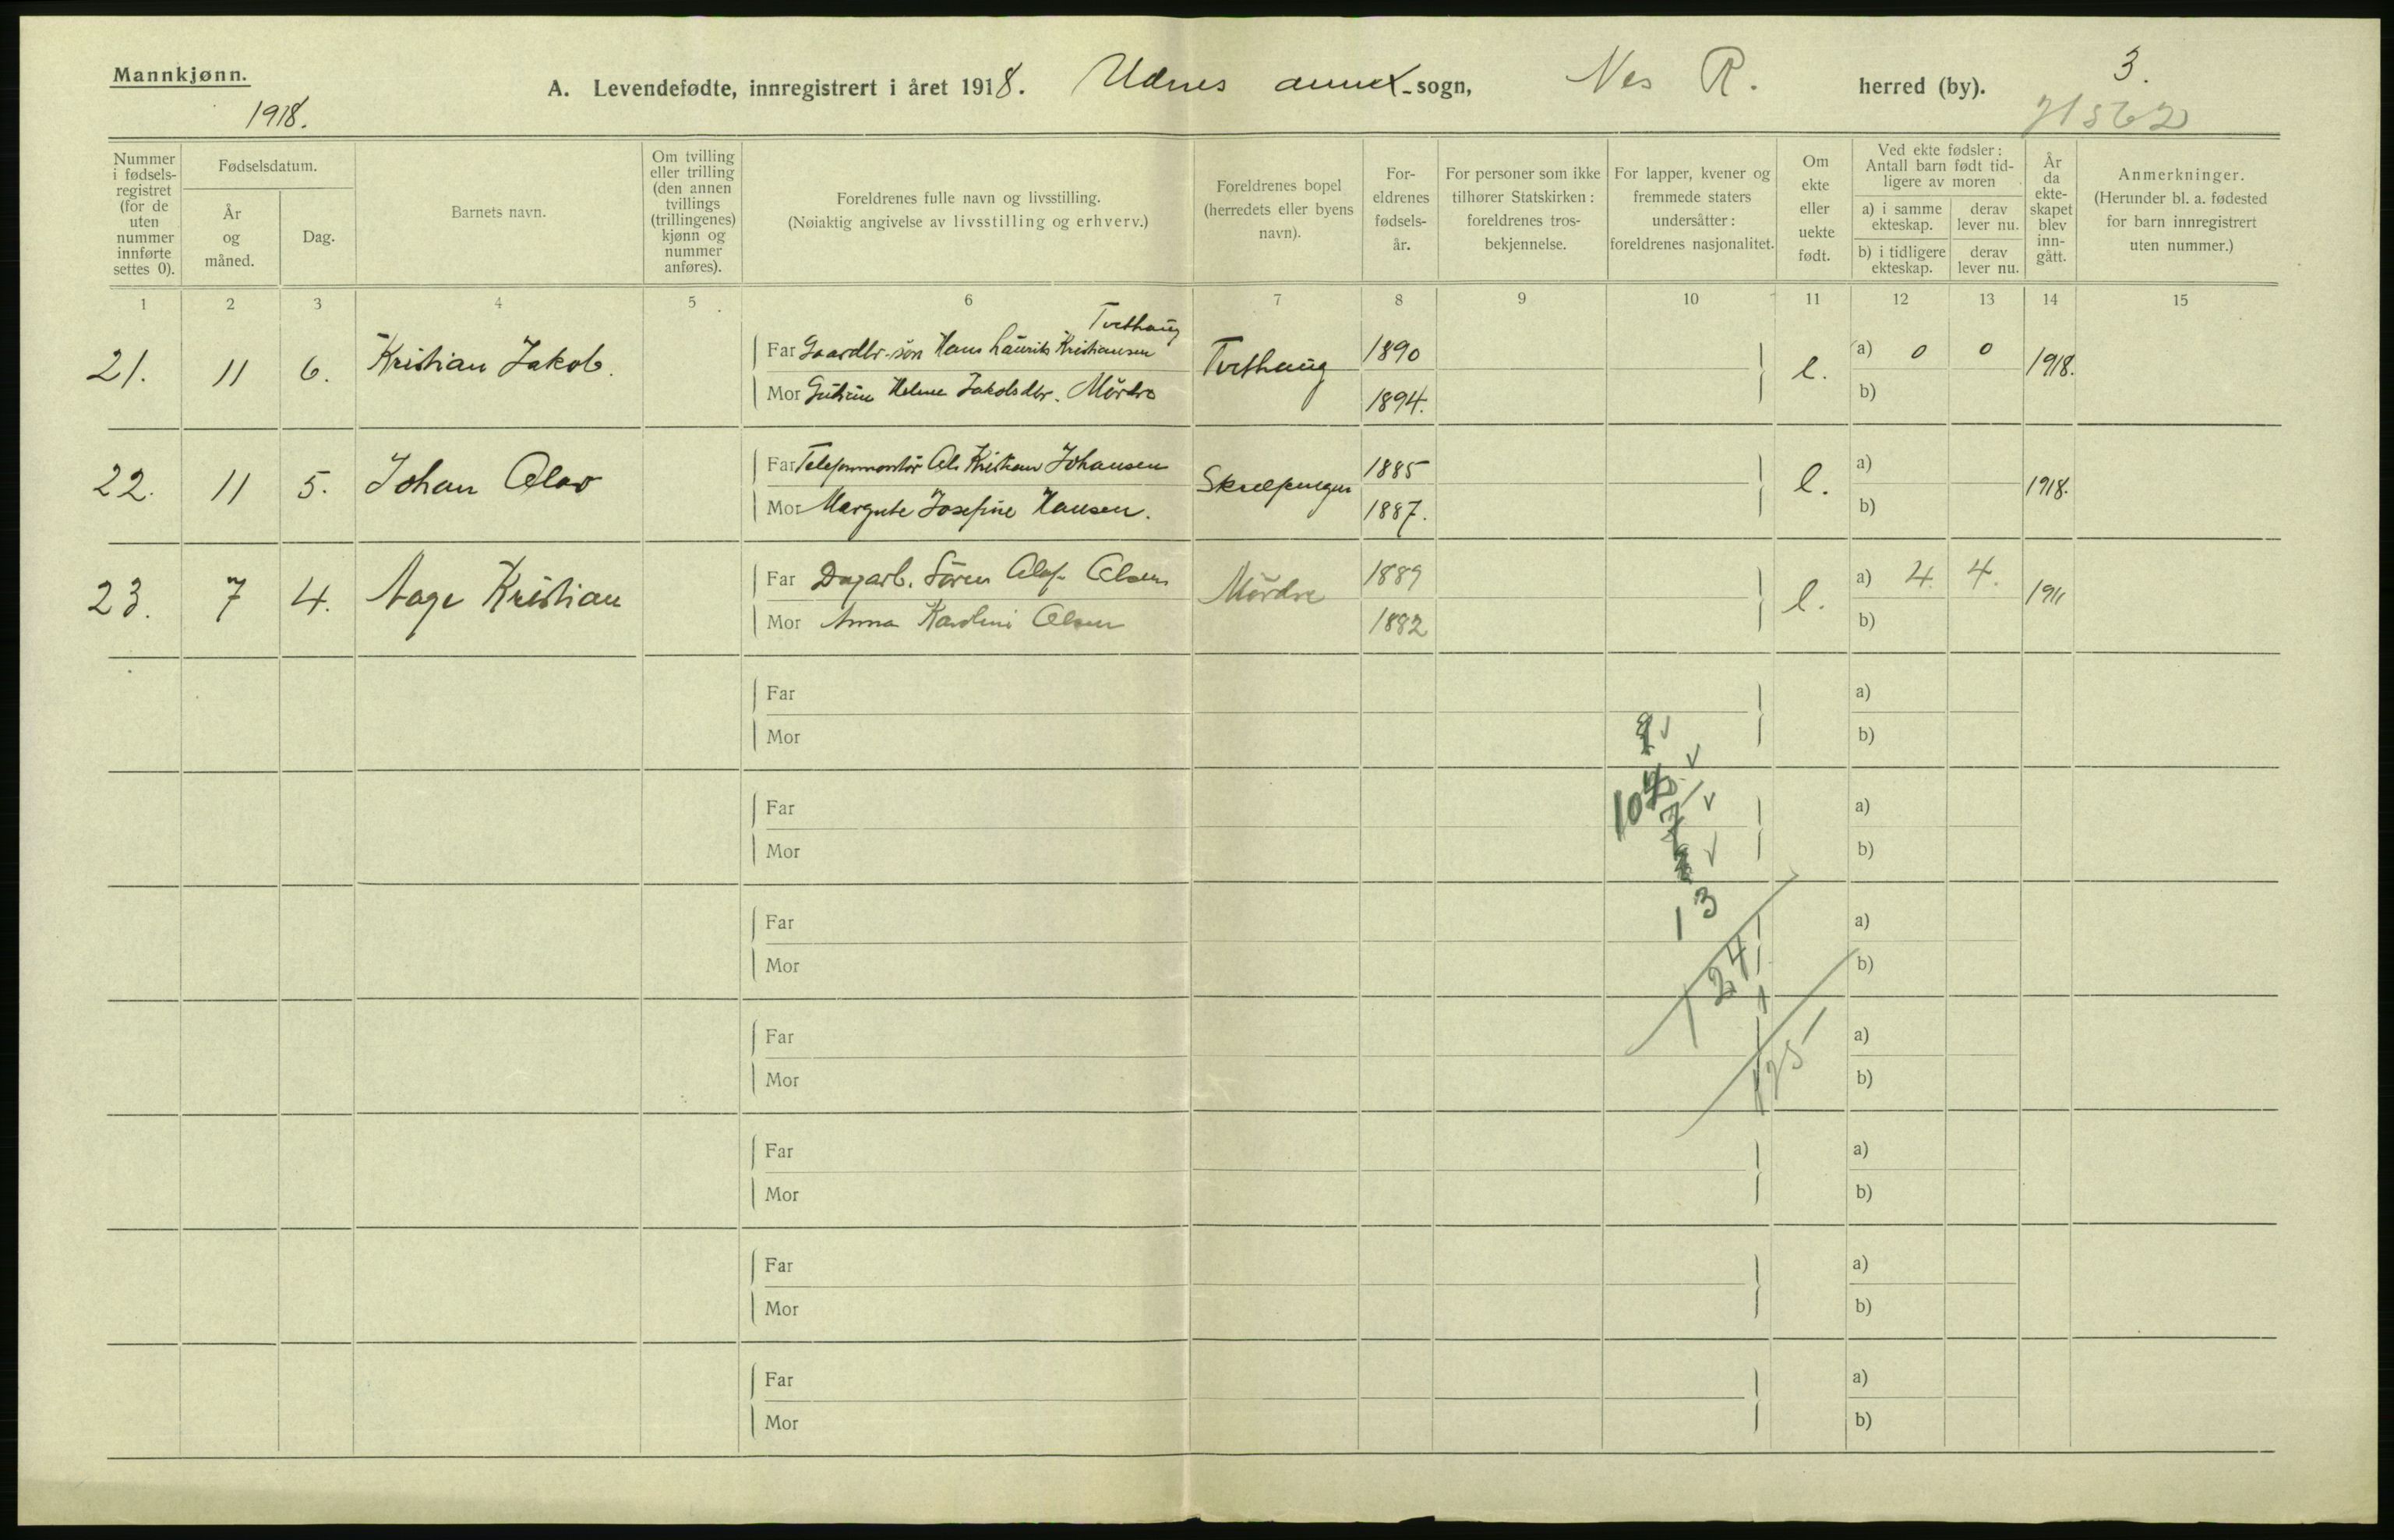 Mannkjønn.
1918.
A. Levendefødte, innregistrert i året 1918. Udnes annex-sogn, Nes R. herred (by). 3.
71562
Nummer i fødsels-registret (for de uten nummer innførte settes 0).
Fødselsdatum.
År og måned.
Dag.
Barnets navn.
Om tvilling eller trilling (den annen tvillings (trillingenes) kjønn og nummer anføres).
Foreldrenes fulle navn og livsstilling.
(Nøiaktig angivelse av livsstilling og erhverv.)
Foreldrenes bopel (herredets eller byens navn).
For-eldrenes fødsels-år.
For personer som ikke tilhører Statskirken: foreldrenes tros-bekjennelse.
For lapper, kvener og fremmede staters undersåtter: foreldrenes nasjonalitet.
Om ekte eller uekte født.
Ved ekte fødsler: Antall barn født tid-ligere av moren
a) i samme ekteskap.
derav lever nu.
b) i tidligere ekteskap.
derav lever nu.
År da ekte-skapet blev inn-gått.
Anmerkninger.
(Herunder bl. a. fødested for barn innregistrert uten nummer.)
1 2 3 4 5 6 7 8 9 10 11 12 13 14 15
Tvethaug
21. 11 6. Kristian Jakob. Far Gaardbr.-søn Hans Laurits Kristiansen Tvethaug 1890 e. a) 0 0 1918.
Mor Helene Jakobsdtr. Mördre 1894. b)
22. 11 5. Johan Olav Far Telefonmontör Ole Kristian Johansen 1885 e. a) 1918.
Mor Margrete Josefine Hansen. 1887. b)
23. 7 4. Aage Kristian Far Dagarb. Sören Olaf Olsen Mördre 1889 e. a) 4. 4. 1911
Mor Anna Karoline Olsen 1882 b)
Far a)
Mor b)
Far a)
Mor b)
Far 13 a)
Mor 124 b)
Far a)
Mor 125 b)
Far a)
Mor b)
Far a)
Mor b)
Far a)
Mor b)